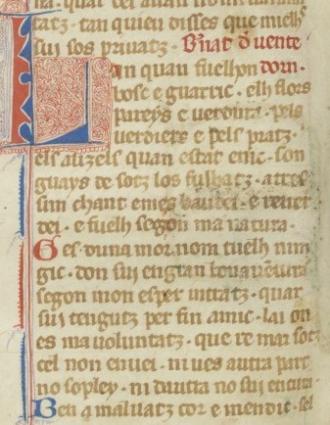 tatz · tan quieu disses que mielh
sui sos privatz · B'nat d' vente
Lan quan fuelhon dorn.
bosc e guarric · elh flors
pareys e verdura · pels
verdiers e pels pratz ·
els auzels quan estat enic · son
guays de sotz los fuelhatz · atres
sim chant em es baudei · e rever
dei · e fuelh segon ma natura ·
Ges duna mor nom tuelh nim
gic · don sui en gran bonauentura
segon mon esper intratz · quar
sui tengutz per fin amic · lai on
es ma voluntatz · que re mar sotz
cel non enuei · ni ves autra part
no sopley · ni dautra no sui encura ·
Ben a malvatz cor e mendic · sel